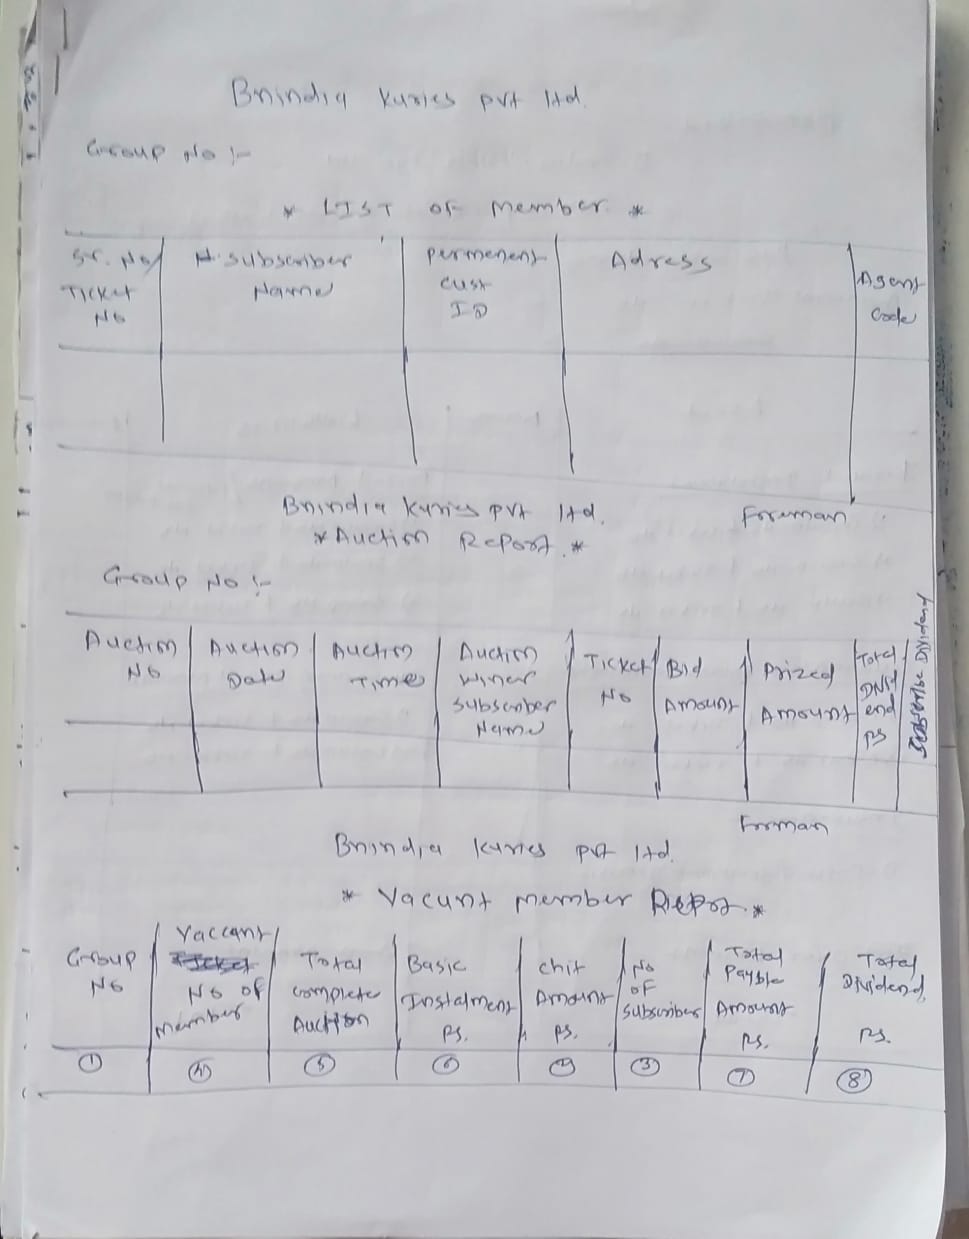 Bnindia Kuries Pvt ltd.
Group No :-
* LIST OF Member *
Sr. No/ Ticket No | Subscriber Name | Permenent Cust ID | Adress | Agent Code
Foreman
Bnindia Kuries Pvt ltd.
* Auction Report. *
Group No :-
Auction No | Auction Date | Auction Time | Auction Winer Subscriber Name | Ticket No | Bid Amount | Prized Amount | Total Divid end Rs | Subscribe Dividend
Forman
Bnindia Kuries Pvt ltd.
* Vacunt Member Repot. *
Group No | Vaccant No OF Member | Total complete Auction | Basic Instalment Rs. | Chit Amount Rs. | No OF Subscriber | Total Payble Amount Rs. | Total Dividend, Rs.
1 | 4 | 5 | 6 | 2 | 3 | 7 | 8